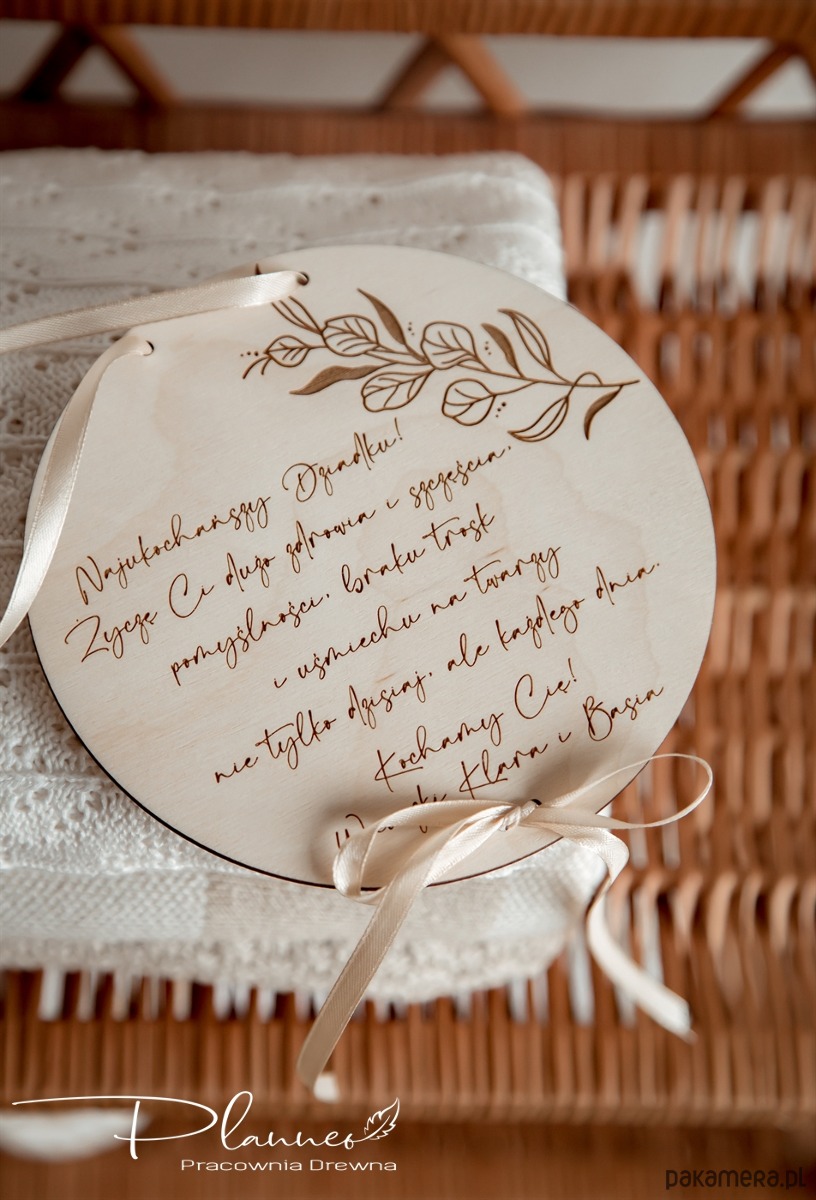 Najukochańszy Dziadku!
Życzę Ci dużo zdrowia i szczęścia,
pomyślności, braku trosk
i uśmiechu na twarzy
nie tylko dzisiaj, ale każdego dnia.
Kochamy Cię!
Klara i Basia
Planneo
Pracownia Drewna
pakamera.pl